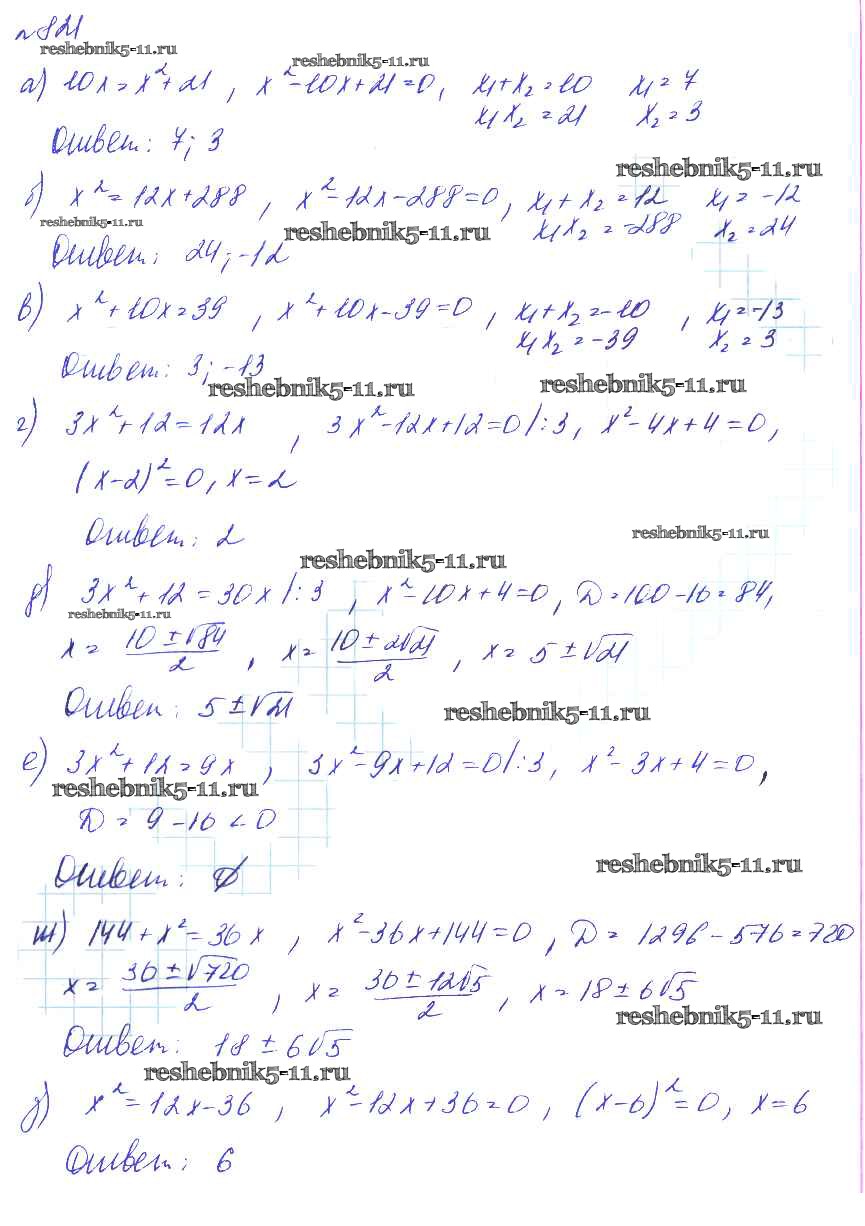 №821
reshebnik5-11.ru
reshebnik5-11.ru
а) 10x = x²+21, x²-10x+21=0, x₁+x₂=10 x₁=7
x₁x₂=21 x₂=3
Ответ: 7; 3
reshebnik5-11.ru
б) x²=12x+288, x²-12x-288=0, x₁+x₂=12 x₁=-12
reshebnik5-11.ru reshebnik5-11.ru x₁x₂=-288 x₂=24
Ответ: 24; -12
в) x²+10x=39, x²+10x-39=0, x₁+x₂=-10, x₁=-13
x₁x₂=-39 x₂=3
Ответ: 3; -13
reshebnik5-11.ru reshebnik5-11.ru
г) 3x²+12=12x, 3x²-12x+12=0 |:3, x²-4x+4=0,
(x-2)²=0, x=2
Ответ: 2
reshebnik5-11.ru
reshebnik5-11.ru
д) 3x²+12=30x |:3, x²-10x+4=0, D=100-16=84,
reshebnik5-11.ru
x = (10±√84)/2, x = (10±2√21)/2, x = 5±√21
Ответ: 5±√21
reshebnik5-11.ru
е) 3x²+12=9x, 3x²-9x+12=0 |:3, x²-3x+4=0,
reshebnik5-11.ru
D = 9-16 < 0
reshebnik5-11.ru
Ответ: ∅
ж) 144+x²=36x, x²-36x+144=0, D = 1296-576=720
x = (36±√720)/2, x = (36±12√5)/2, x = 18±6√5
reshebnik5-11.ru
Ответ: 18±6√5
reshebnik5-11.ru
з) x²=12x-36, x²-12x+36=0, (x-6)²=0, x=6
Ответ: 6